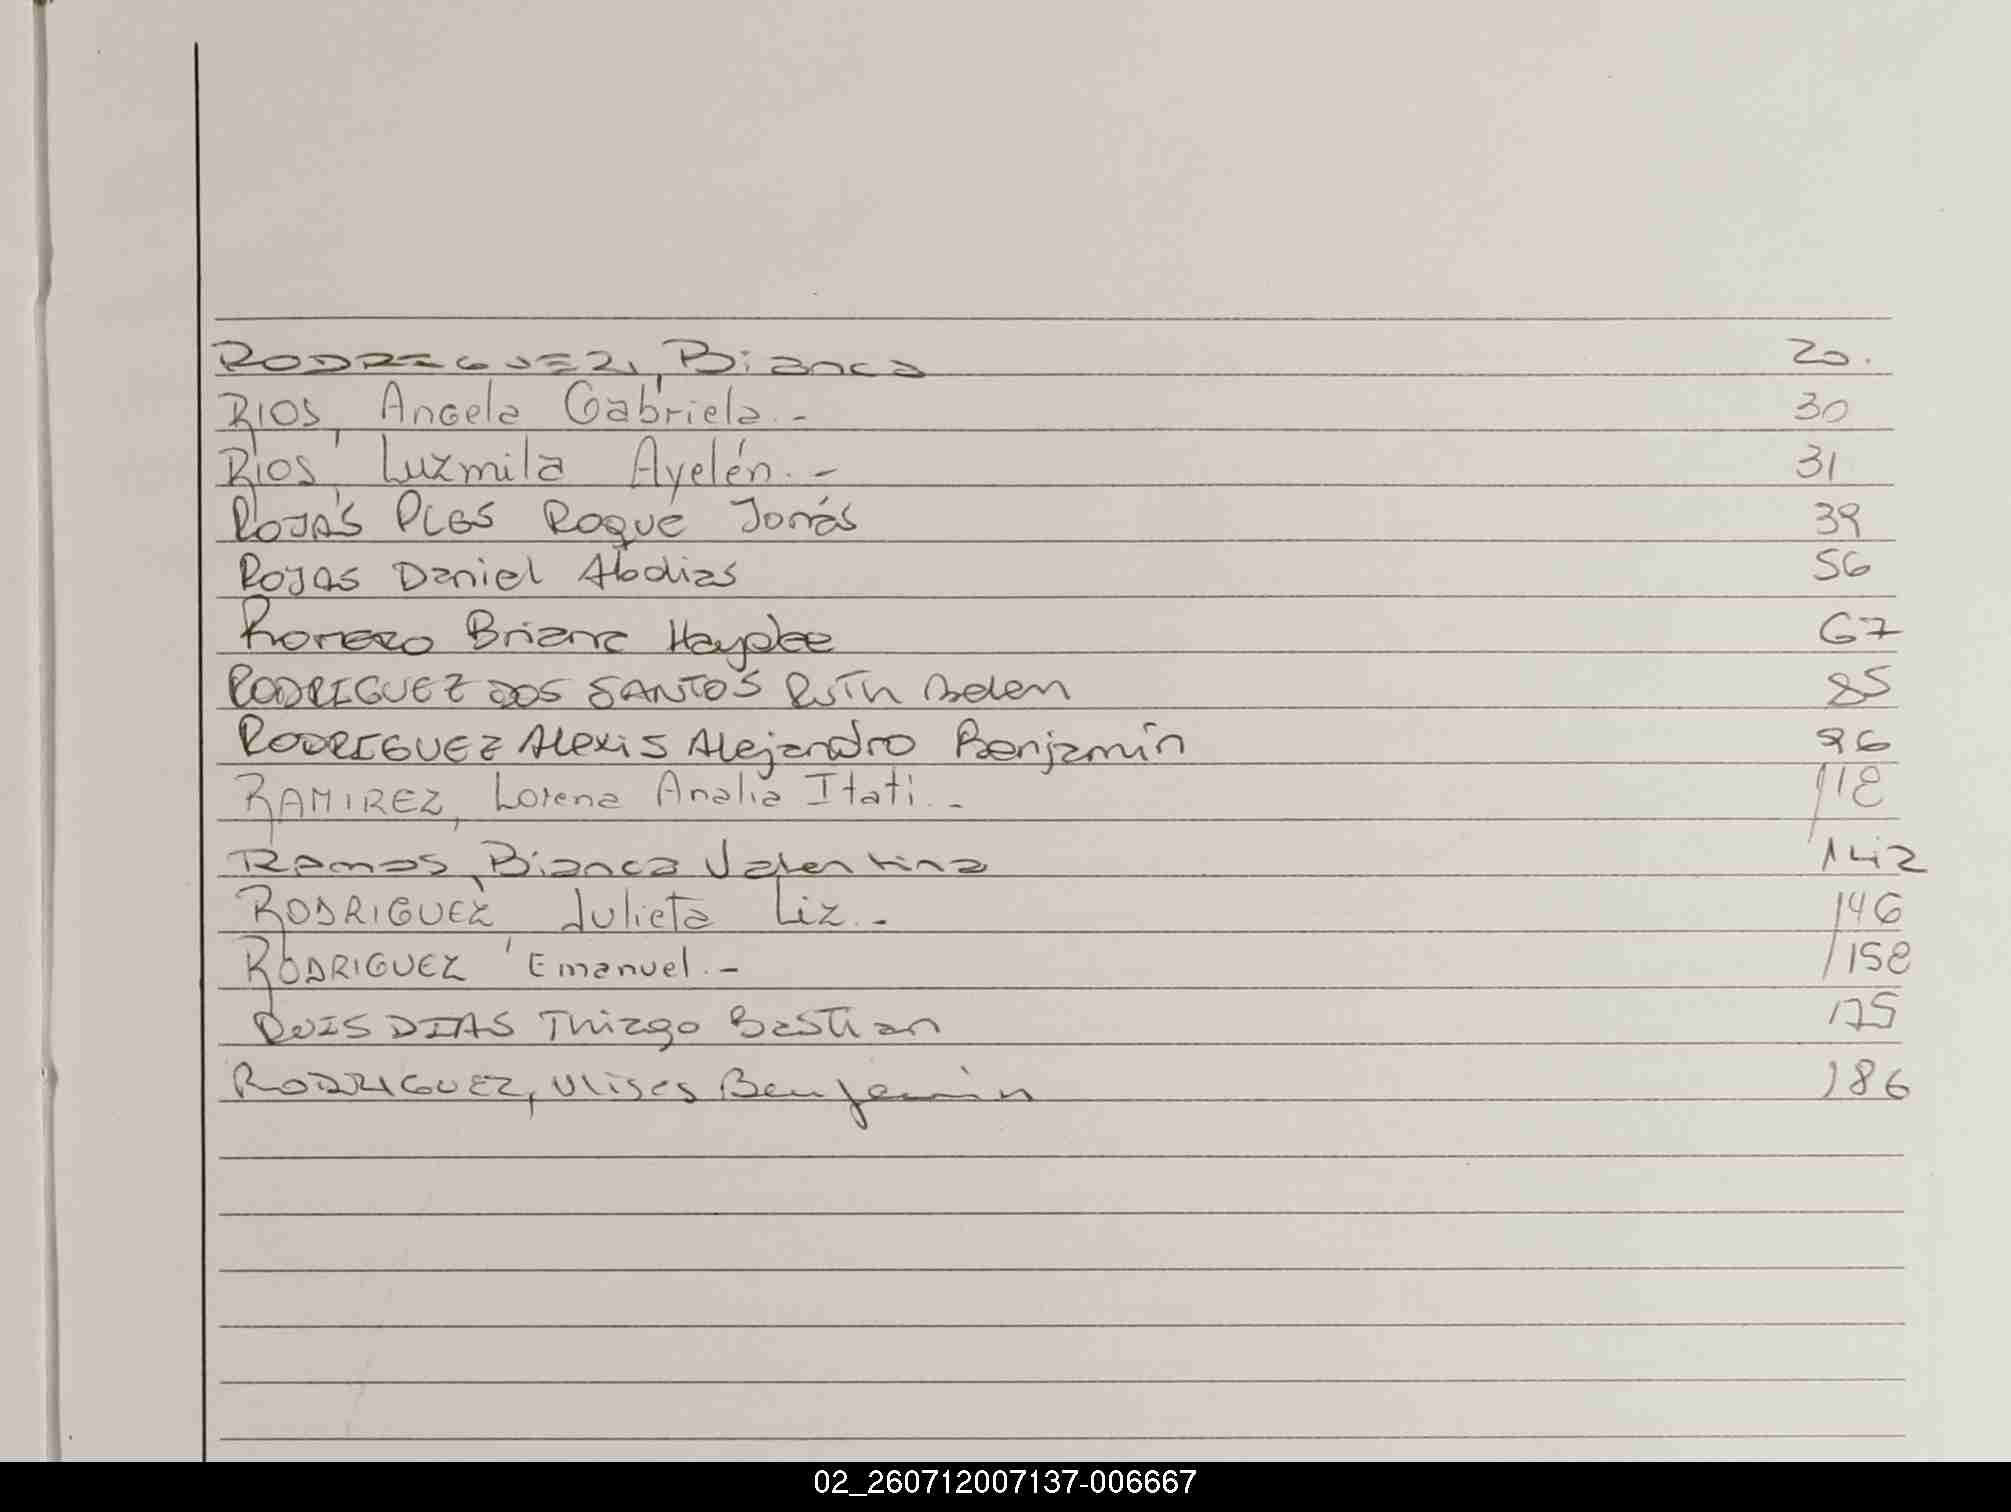 RODRIGUEZ, Bianca 20.
RIOS, Angela Gabriela.- 30
RIOS, Luzmila Ayelén.- 31
ROJAS Roque Jonás 39
ROJAS Daniel Abdias 56
Romero Briana Haydee 67
RODRIGUEZ DOS SANTOS Ruth Belen 85
RODRIGUEZ Alexis Alejandro Benjamín 96
RAMIREZ, Lorena Analia Itati.- 118
Ramos, Bianca Valentina 142
RODRIGUEZ, Julieta Liz.- 146
RODRIGUEZ, Emanuel.- 158
RUIS DIAS Thiago Bastian 175
RODRIGUEZ, Ulises Benjamin 186
02_260712007137-006667